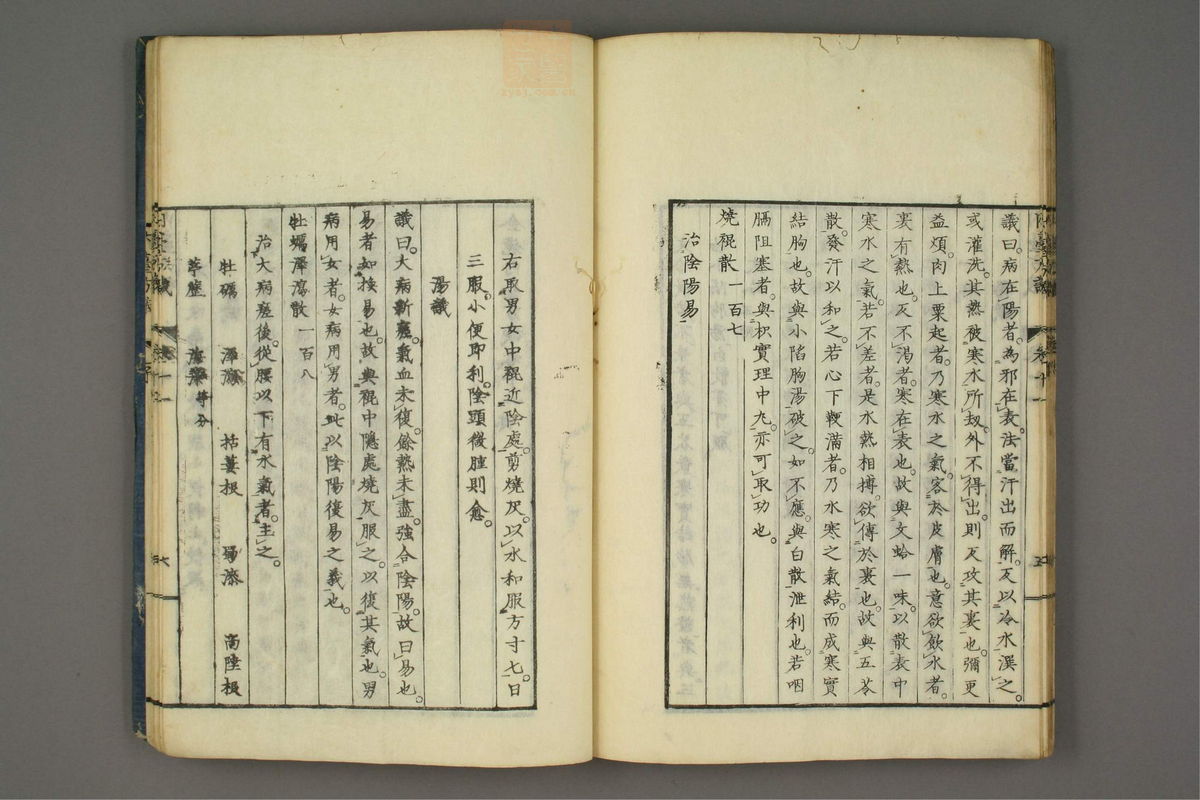 議曰病在陽者為邪在表法當汗出而解反以冷水潠之
或灌洗其熱被寒水所劫外不得出則反攻其裏也彌更
益煩肉上粟起者乃寒水之氣客於皮膚也意欲飲水者
裏有熱也反不渴者寒在表也故與文蛤一味以散表中
寒水之氣若不差者是水熱相搏欲傳於裏也故與五苓
散發汗以和之若心下鞕滿者乃水寒之氣結而成寒實
結胸也故與小陷胸湯破之如不應與白散泄利也若咽
膈阻塞者與枳實理中丸亦可取功也
燒裩散一百七
治陰陽易
右取男女中裩近陰處剪燒灰以水和服方寸七日
三服小便即利陰頭微腫則愈
湯議
議曰大病新瘥氣血未復餘熱未盡強合陰陽故曰易也
易者如換易也故與裩中隱處燒灰服之以復其氣也男
病用女者女病用男者此以陰陽復易之義也
牡蠣澤瀉散一百八
治大病瘥後從腰以下有水氣者主之
牡礪 澤瀉 括蔞根 蜀漆 商陸根
葶藶 海藻 等分